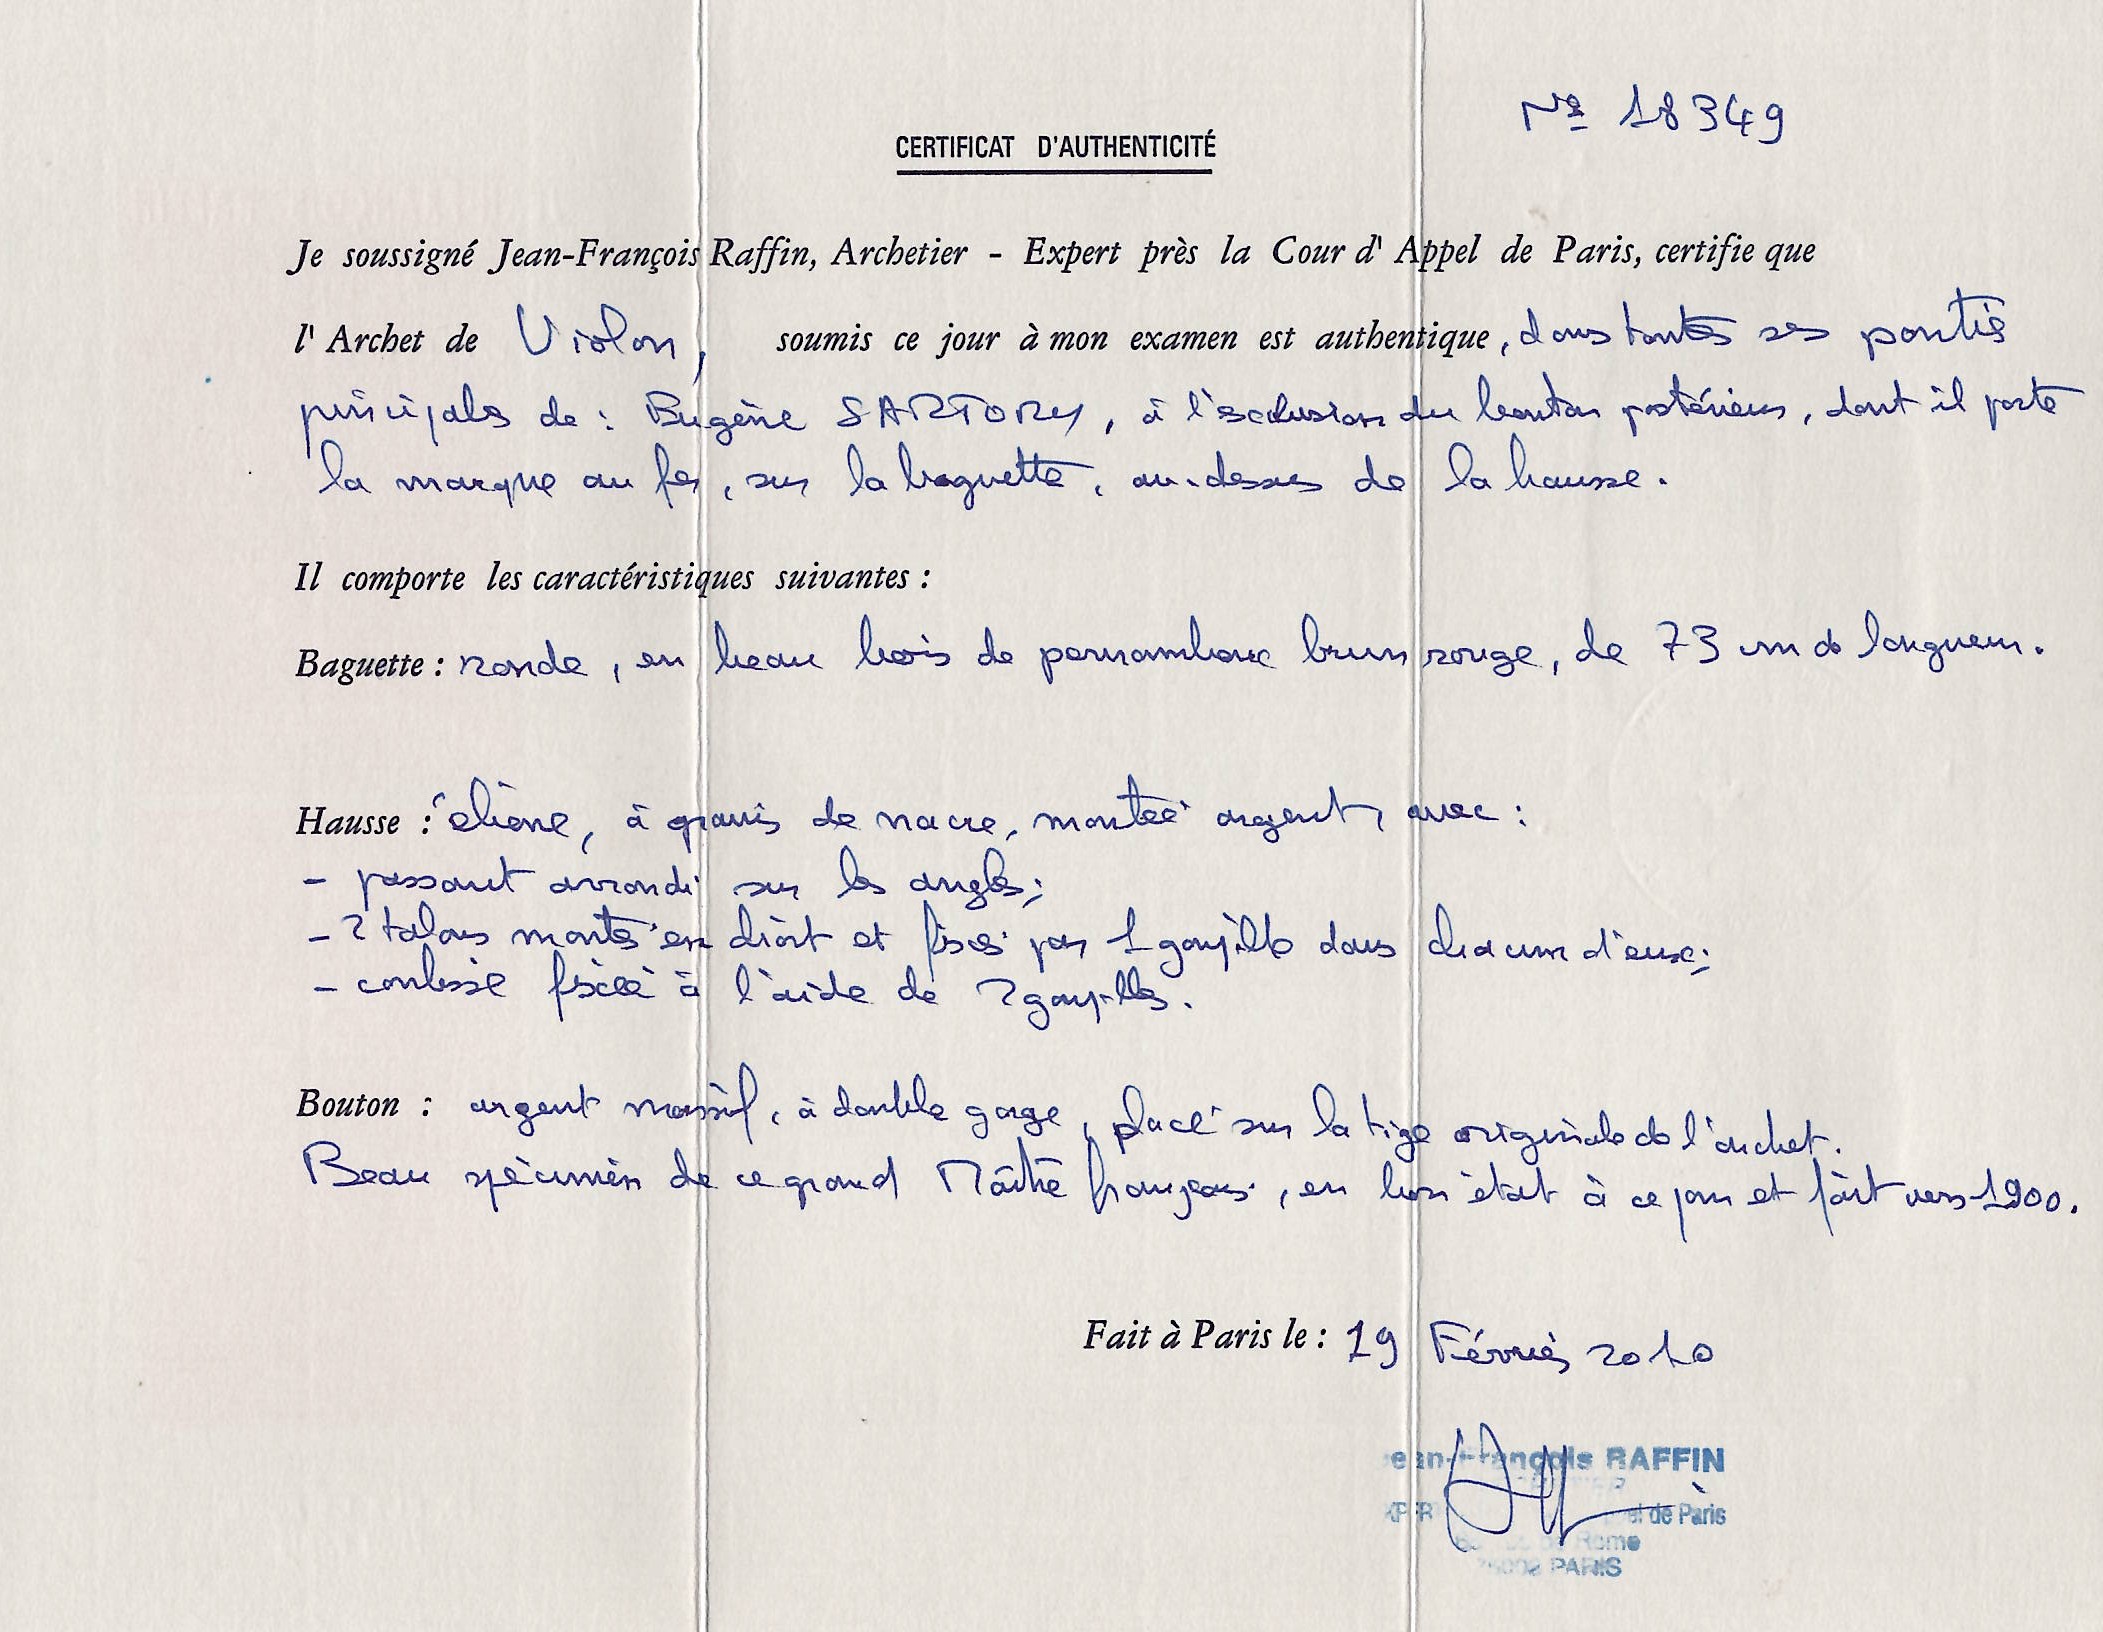 Nº 18349
CERTIFICAT D'AUTHENTICITÉ
Je soussigné Jean-François Raffin, Archetier - Expert près la Cour d' Appel de Paris, certifie que
l' Archet de Violon, soumis ce jour à mon examen est authentique, dans toutes ses parties
principales de : Eugène SARTORY, à l'exclusion du bouton postérieur, dont il porte
la marque au fer, sur la baguette, au-dessus de la hausse.
Il comporte les caractéristiques suivantes :
Baguette : ronde, en beau bois de pernambouc brun rouge, de 73 cm de longueur.
Hausse : ébène, à grains de nacre, montée argent, avec :
- passant arrondi sur les angles;
- 2 talons montés en droit et fixés par 1 goupille dans chacun d'eux;
- coulisse fixée à l'aide de 2 goupilles.
Bouton : argent massif, à double gorge, placé sur la tige originale de l'archet.
Beau spécimen de ce grand Maître français, en bon état à ce jour et fait vers 1900.
Fait à Paris le : 19 Février 2010
Jean-François RAFFIN
de Paris
Rome
75008 PARIS